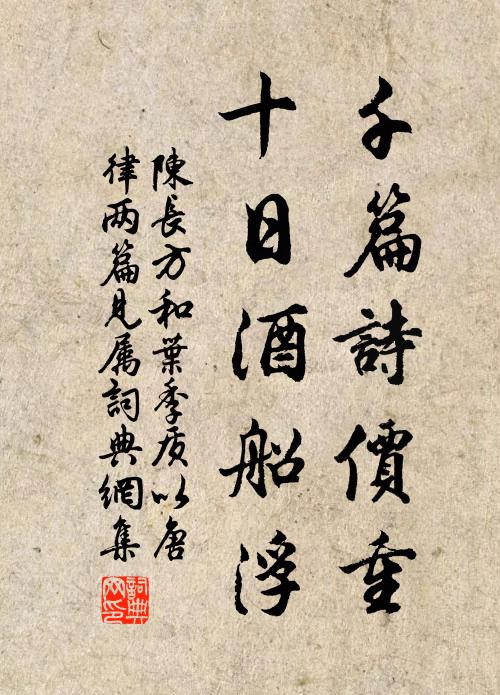 千篇詩價重
十日酒船浮
陳長方和葉季质以唐
律两篇見属詞典網集
詞典网印